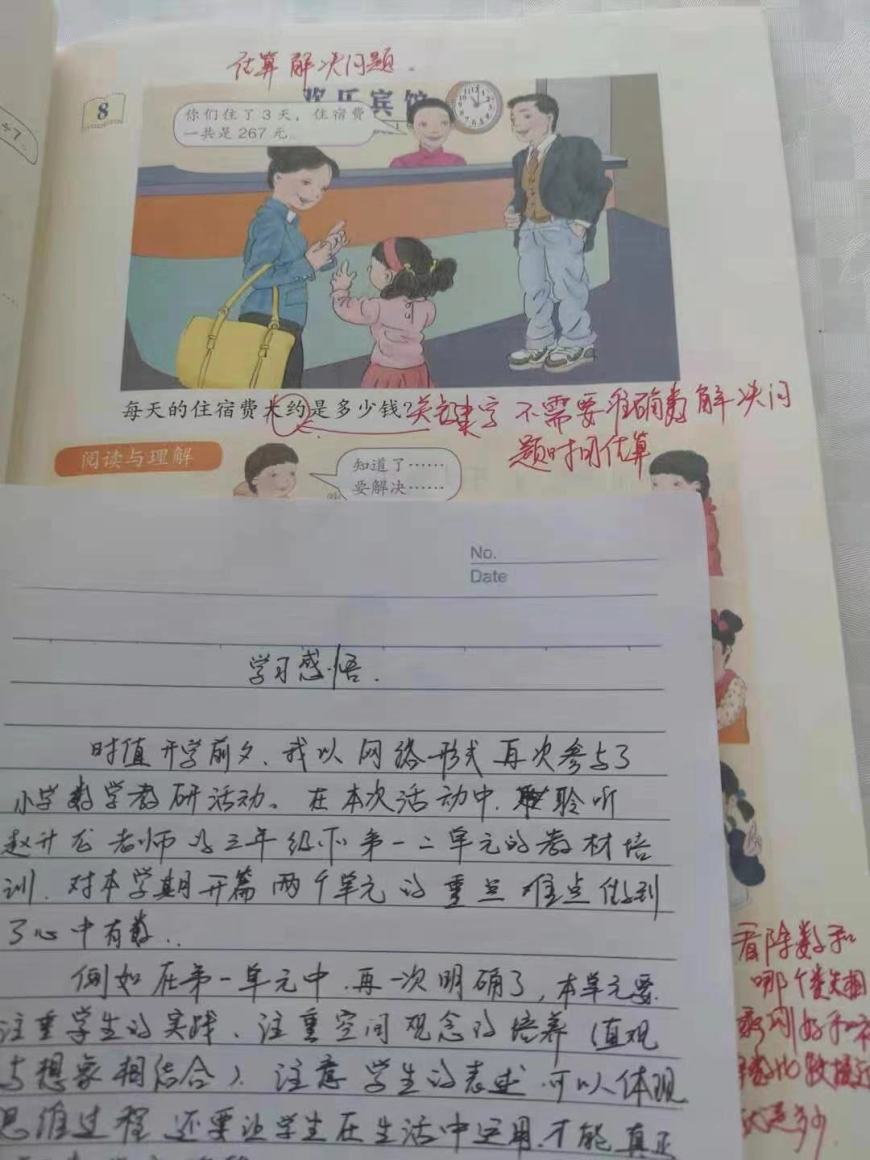 估算解决问题.
8
欢乐宾馆
你们住了3天，住宿费
一共是267元。
每天的住宿费大约是多少钱?
关键字 不需要准确数解决问
题时用估算
阅读与理解
知道了……
要解决……
No.
Date
学习感悟.
时值开学前夕、我以网络形式再次参与了
小学数学教研活动。在本次活动中.聆听
赵升龙老师的三年级下第一二单元的教材培
训.对本学期开篇两个单元的重点难点做到
了心中有数..
例如在第一单元中.再一次明确了,本单元要
注重学生的实践、注重空间观念的培养(直观
与想象相结合).注意学生的表述.可以体现
思维过程.还要让学生在生活中运用.才能真正
看除数和
哪个数相